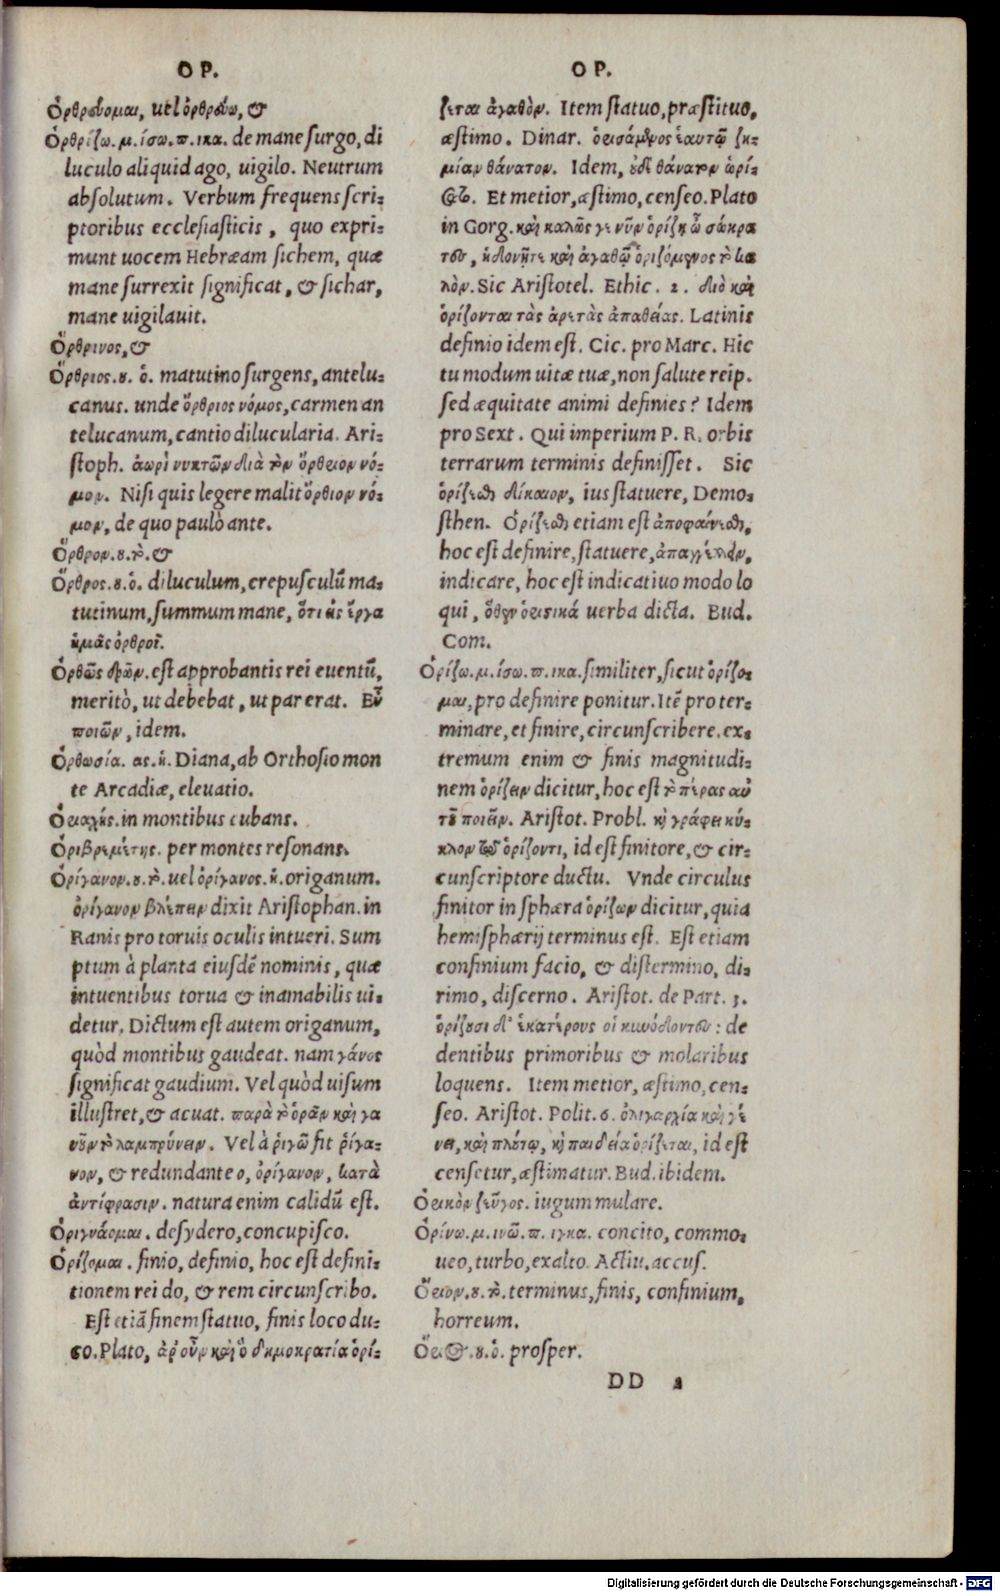 ΟΡ.
Ὀρθρεύομαι, uel ὀρθρεύω, &
Ὀρθρίζω. μ. ίσω. π. ικα. de mane surgo, di
luculo aliquid ago, uigilo. Neutrum
absolutum. Verbum frequens scri-
ptoribus ecclesiasticis, quo expri-
munt uocem Hebræam sichem, quæ
mane surrexit significat, & sichar,
mane uigilauit.
Ὄρθρινος, &
Ὄρθριος. ου. ὁ. matutino surgens, antelu-
canus. unde ὄρθριος νόμος, carmen an
telucanum, cantio dilucularia. Ari-
stoph. ἀωρὶ νυκτῶν διὰ τὸν ὄρθριον νό-
μον. Nisi quis legere malit ὄρθιον νό-
μον, de quo paulò ante.
Ὄρθρον. ου. τὸ. &
Ὄρθρος. ου. ὁ. diluculum, crepusculũ ma-
tutinum, summum mane, ὅτι εἰς ἔργα
ἡμᾶς ὀρθροῖ.
Ὀρθῶς δρῶν. est approbantis rei euentũ,
meritò, ut debebat, ut par erat. Εὖ
ποιῶν, idem.
Ὀρθωσία. ας. ἡ. Diana, ab Orthosio mon
te Arcadiæ, eleuatio.
Ὀριαχής. in montibus cubans.
Ὀριβρεμέτης. per montes resonans.
Ὀρίγανον. ου. τὸ. uel ὀρίγανος. ἡ. origanum.
ὀρίγανον βλέπειν dixit Aristophan. in
Ranis pro toruis oculis intueri. Sum
ptum à planta eiusdẽ nominis, quæ
intuentibus torua & inamabilis ui-
detur. Dictum est autem origanum,
quòd montibus gaudeat. nam γάνος
significat gaudium. Vel quòd uisum
illustret, & acuat. παρὰ τὸ ὁρᾶν καὶ γα
νοῦν τὸ λαμπρύνειν. Vel à ῥιγῶ fit ῥίγα-
νον, & redundante ο, ὀρίγανον, κατὰ
ἀντίφρασιν. natura enim calidũ est.
Ὀριγνάομαι. desydero, concupisco.
Ὁρίζομαι. finio, definio, hoc est defini-
tionem rei do, & rem circunscribo.
Est etiã finem statuo, finis loco du-
co. Plato, ἆρ᾽ οὖν καὶ ὃ δημοκρατία ὁρί-
ΟΡ.
ζεται ἀγαθὸν. Item statuo, præstituo,
æstimo. Dinar. ὁρισάμενος ἑαυτῷ ζη-
μίαν θάνατον. Idem, οὐδὲ θάνατον ὡρί-
σατο. Et metior, æstimo, censeo. Plato
in Gorg. καὶ καλῶς γε νῦν ὁρίζῃ ὦ σώκρα
τες, ἡδονῇ τε καὶ ἀγαθῷ ὁριζόμενος τὸ κα
λὸν. Sic Aristotel. Ethic. 2. διὸ καὶ
ὁρίζονται τὰς ἀρετὰς ἀπαθείας. Latinis
definio idem est. Cic. pro Marc. Hic
tu modum uitæ tuæ, non salute reip.
sed æquitate animi definies? Idem
pro Sext. Qui imperium P. R. orbis
terrarum terminis definisset. Sic
ὁρίζεσθαι δίκαιον, ius statuere, Demo-
sthen. Ὁρίζεσθαι etiam est ἀποφαίνεσθαι,
hoc est definire, statuere, ἀπαγγέλλειν,
indicare, hoc est indicatiuo modo lo
qui, ὅθεν ὁριστικά uerba dicta. Bud.
Com.
Ὁρίζω. μ. ίσω. π. ικα. similiter, sicut ὁρίζο-
μαι, pro definire ponitur. Itẽ pro ter-
minare, et finire, circunscribere. ex-
tremum enim & finis magnitudi-
nem ὁρίζειν dicitur, hoc est τὸ πέρας αὐ
τῆς ποιεῖν. Aristot. Probl. καὶ γράφει κύ-
κλον τῷ ὁρίζοντι, id est finitore, & cir-
cunscriptore ductu. Vnde circulus
finitor in sphæra ὁρίζων dicitur, quia
hemisphærij terminus est. Est etiam
confinium facio, & distermino, di-
rimo, discerno. Aristot. de Part. 3.
ὁρίζουσι δ᾽ ἑκατέρους οἱ κυνόδοντες: de
dentibus primoribus & molaribus
loquens. Item metior, æstimo, cen-
seo. Aristot. Polit. 6. ὀλιγαρχία καὶ γέ
νει, καὶ πλούτῳ, καὶ παιδεία ὁρίζεται, id est
censetur, æstimatur. Bud. ibidem.
Ὀρικὸν ζεῦγος. iugum mulare.
Ὀρίνω. μ. ινῶ. π. ιγκα. concito, commo-
ueo, turbo, exalto. Actiu. accus.
Ὅριον. ου. τὸ. terminus, finis, confinium,
horreum.
Ὅριος. ου. ὁ. prosper.
DD 2
Digitalisierung gefördert durch die Deutsche Forschungsgemeinschaft - DFG